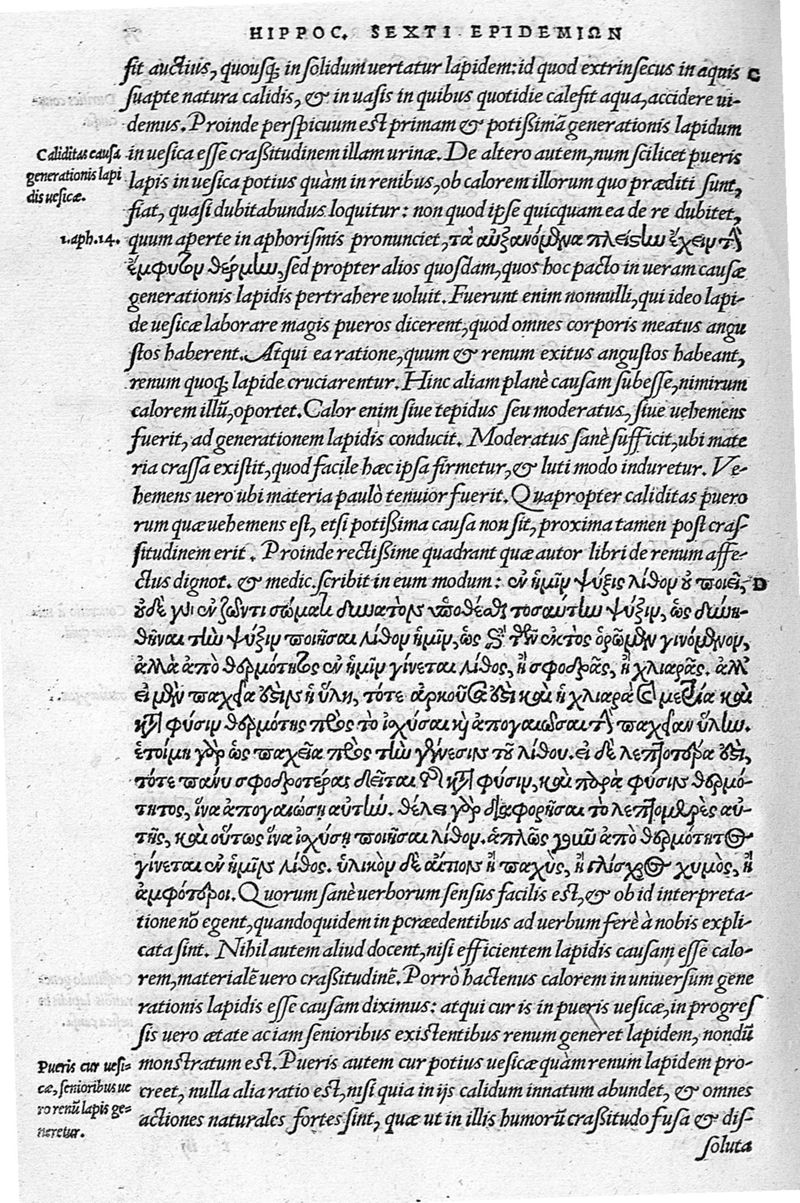 HIPPOC. SEXTI EPIDEMIΩN
fit auctius, quousq; in solidum uertatur lapidem: id quod extrinsecus in aquis C
suapte natura calidis, & in uasis in quibus quotidie calefit aqua, accidere ui-
demus. Proinde perspicuum est primam & potißimã generationis lapidum
Caliditas causa
generationis lapi
dis uesicæ.
in uesica esse craßitudinem illam urinæ. De altero autem, num scilicet pueris
lapis in uesica potius quàm in renibus, ob calorem illorum quo præditi sunt,
fiat, quasi dubitabundus loquitur: non quod ipse quicquam ea de re dubitet,
1. aph. 14.
quum aperte in aphorismis pronunciet, τὰ αὐξανόμενα πλεῖστον ἔχειν τὸ
ἔμφυτον θερμὸν, sed propter alios quosdam, quos hoc pacto in ueram causæ
generationis lapidis pertrahere uoluit. Fuerunt enim nonnulli, qui ideo lapi-
de uesicæ laborare magis pueros dicerent, quod omnes corporis meatus angu
stos haberent. Atqui ea ratione, quum & renum exitus angustos habeant,
renum quoq; lapide cruciarentur. Hinc aliam planè causam subesse, nimirum
calorem illũ, oportet. Calor enim siue tepidus seu moderatus, siue uehemens
fuerit, ad generationem lapidis conducit. Moderatus sanè sufficit, ubi mate
ria crassa existit, quod facile hæc ipsa firmetur, & luti modo induretur. Ve-
hemens uero ubi materia paulò tenuior fuerit. Quapropter caliditas puero
rum quæ uehemens est, etsi potißima causa non sit, proxima tamen post cras-
situdinem erit. Proinde rectißime quadrant quæ autor libri de renum affe-
ctus dignot. & medic. scribit in eum modum: ἐν ἡμῖν ψύξις λίθον οὐ ποιεῖ, D
οὐδὲ γὰρ ἐν ζῶντι σώματι δυνατὸν ὑποθέσθαι τοσαύτην ψύξιν, ὡς δύνη-
θῆναι τὴν ψύξιν ποιῆσαι λίθον ἡμῖν, ὡς ἐπὶ τῶν ἐκτὸς ὁρῶμεν γινόμενον,
ἀλλὰ ἀπὸ θερμότητος ἐν ἡμῖν γίνεται λίθος, ἢ σφοδρᾶς, ἢ χλιαρᾶς. ἀλλ᾽
εἰ μὲν παχεῖα ἐστὶν ἡ ὕλη, τότε ἀρκοῦσα ἐστὶ καὶ ἡ χλιαρὰ καὶ μετρία καὶ
κατὰ φύσιν θερμότης πρὸς τὸ ἰσχύσαι καὶ ἀπογαιῶσαι τὴν παχεῖαν ὕλην.
ἑτοίμη γὰρ ὡς παχεῖα πρὸς τὴν γένεσιν τοῦ λίθου. εἰ δὲ λεπτοτέρα ἐστὶ,
τότε πάνυ σφοδροτέρας δεῖται τῆς κατὰ φύσιν, καὶ παρὰ φύσιν θερμό-
τητος, ἵνα ἀπογαιώσῃ αὐτήν. θέλει γὰρ διαφορῆσαι τὸ λεπτομερὲς αὐ-
τῆς, καὶ οὕτως ἵνα ἰσχύσῃ ποιῆσαι λίθον. ἁπλῶς γοῦν ἀπὸ θερμότητος
γίνεται ἐν ἡμῖν λίθος. ὑλικὸν δὲ αἴτιον ἢ παχὺς, ἢ γλίσχρος χυμὸς, ἢ
ἀμφότεροι. Quorum sanè uerborum sensus facilis est, & ob id interpreta-
tione nõ egent, quandoquidem in pcræedentibus ad uerbum ferè à nobis expli-
cata sint. Nihil autem aliud docent, nisi efficientem lapidis causam esse calo-
rem, materialẽ uero craßitudinẽ. Porrò hactenus calorem in uniuersum gene
rationis lapidis esse causam diximus: atqui cur is in pueris uesicæ, in progres
sis uero ætate ac iam senioribus existentibus renum generet lapidem, nondũ
Pueris cur uesi-
cæ, senioribus ue
ro renũ lapis ge-
neretur.
monstratum est. Pueris autem cur potius uesicæ quàm renum lapidem pro-
creet, nulla alia ratio est, nisi quia in ijs calidum innatum abundet, & omnes
actiones naturales fortes sint, quæ ut in illis humorũ craßitudo fusa & dis-
soluta